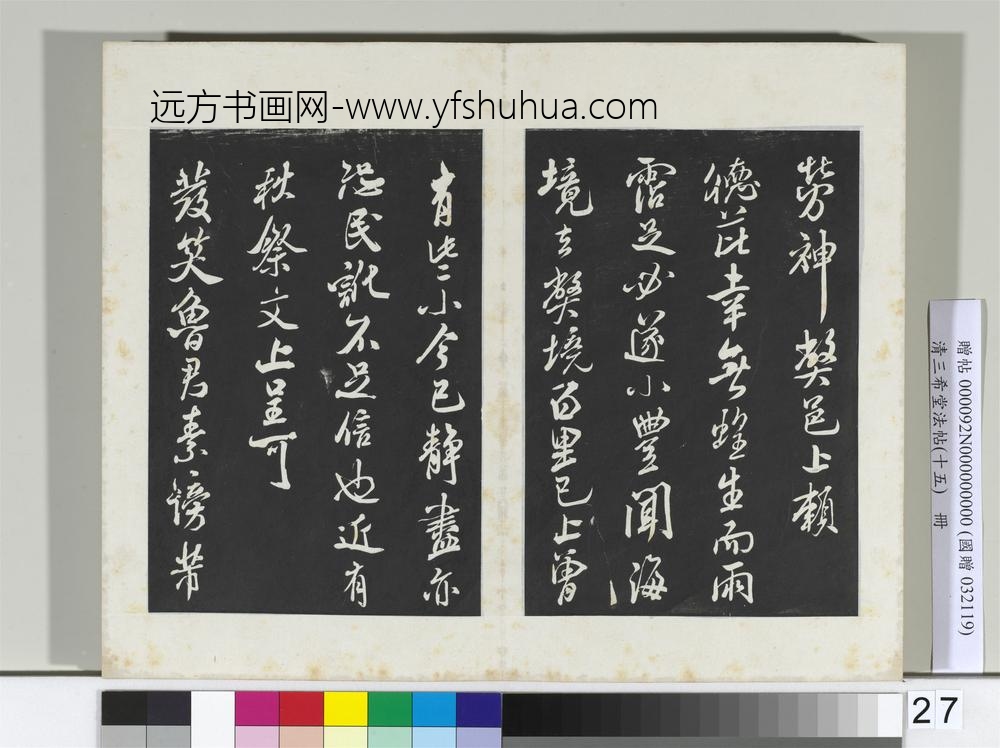 远方书画网-www.yfshuhua.com
勞神獘邑上賴
德芘幸無蝗生而雨
霑足必遂小豐聞海
境去獘境百里已上曾
有些小今已静盡亦
恐民訛不足信也近有
秋祭文上呈可
發笑魯君素謗芾
贈帖 000092N000000000 (國贈 032119)
清三希堂法帖(十五) 冊
27